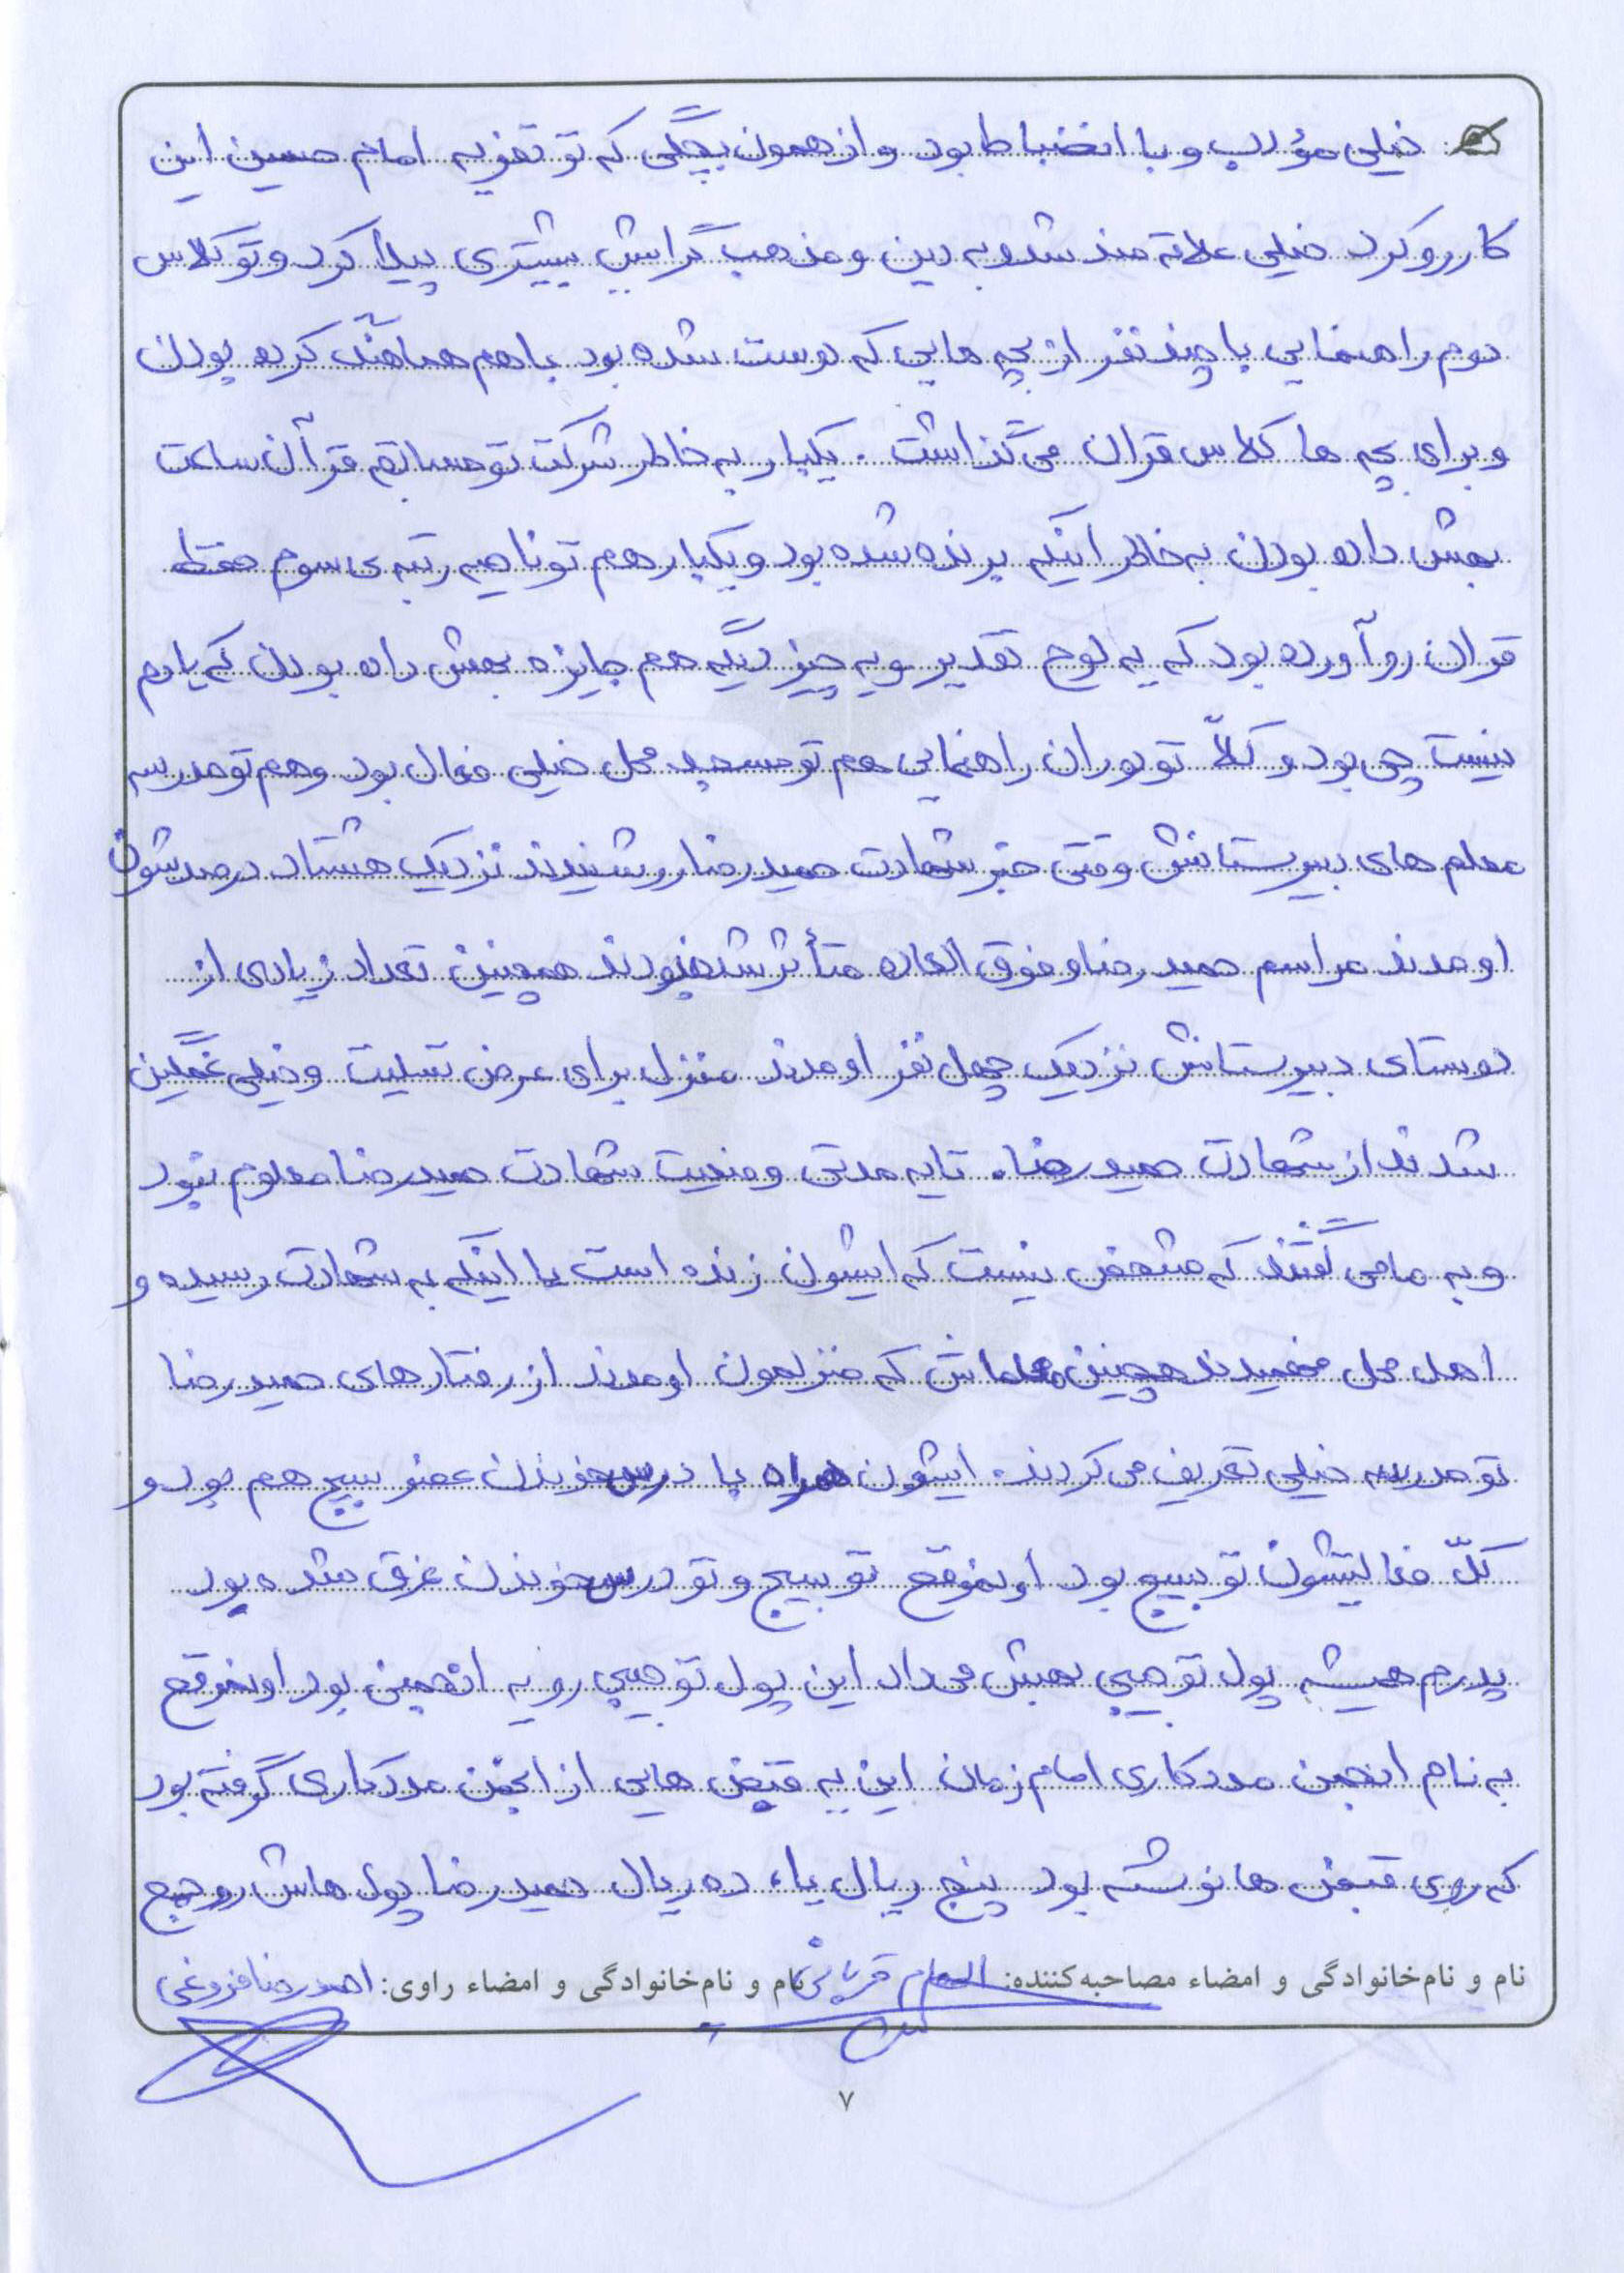 خیلی مؤدب و با انضباط بود و از همون بچگی که تو تعزیه امام حسین این
کاررو کرد خیلی علاقه مند شد و به دین و مذهب گرایش بیشتری پیدا کرد و تو کلاس
دوم راهنمایی با چند نفر از بچه هایی که دوست شده بود باهم هماهنگ کرده بودن
و برای بچه ها کلاس قران می گذاشت . یکبار به خاطر شرکت تو مسابقه قرآن ساعت
بهش داده بودن به خاطر اینکه برنده شده بود و یکبار هم تو ناحیه رتبه ی سوم حفظ
قران رو آورده بود که یه لوح تقدیر و یه چیز دیگه هم جایزه بهش داده بودن که یادم
نیست چی بود و کلاً تو دوران راهنمایی هم تو مسجد محل خیلی فعال بود و هم تو مدرسه
معلم های دبیرستانش وقتی خبر شهادت حمیدرضا رو شنیدند نزدیک هشتاد درصدشون
اومدند مراسم حمیدرضا و فوق العاده متأثر شده بودند همچنین تعداد زیادی از
دوستای دبیرستانش نزدیک چهل نفر اومدند منزل برای عرض تسلیت و خیلی غمگین
شدند از شهادت حمیدرضا. تا یه مدتی وضعیت شهادت حمیدرضا معلوم نبود
و به ما می گفتند که مشخص نیست که ایشون زنده است یا اینکه به شهادت رسیده و
اهل محل فهمیدند همچنین معلماش که منزلمون اومدند از رفتارهای حمیدرضا
تو مدرسه خیلی تعریف می کردند. ایشون همراه با درس خوندن عضو بسیج هم بود و
کلّ فعالیتشون تو بسیج بود اونموقع تو بسیج و تو درس خوندن غرق شده بود
پدرم همیشه پول تو جیبی بهش می داد این پول تو جیبی رو یه انجمنی بود اونموقع
به نام انجمن مددکاری امام زمان این یه قبض هایی از انجمن مددکاری گرفته بود
که روی قبض ها نوشته بود پنج ریال یا ده ریال حمیدرضا پول هاش رو جمع
نام و نام‌خانوادگی و امضاء مصاحبه‌کننده: الهام قربانی نام و نام‌خانوادگی و امضاء راوی: احمدرضا فروغی
۷